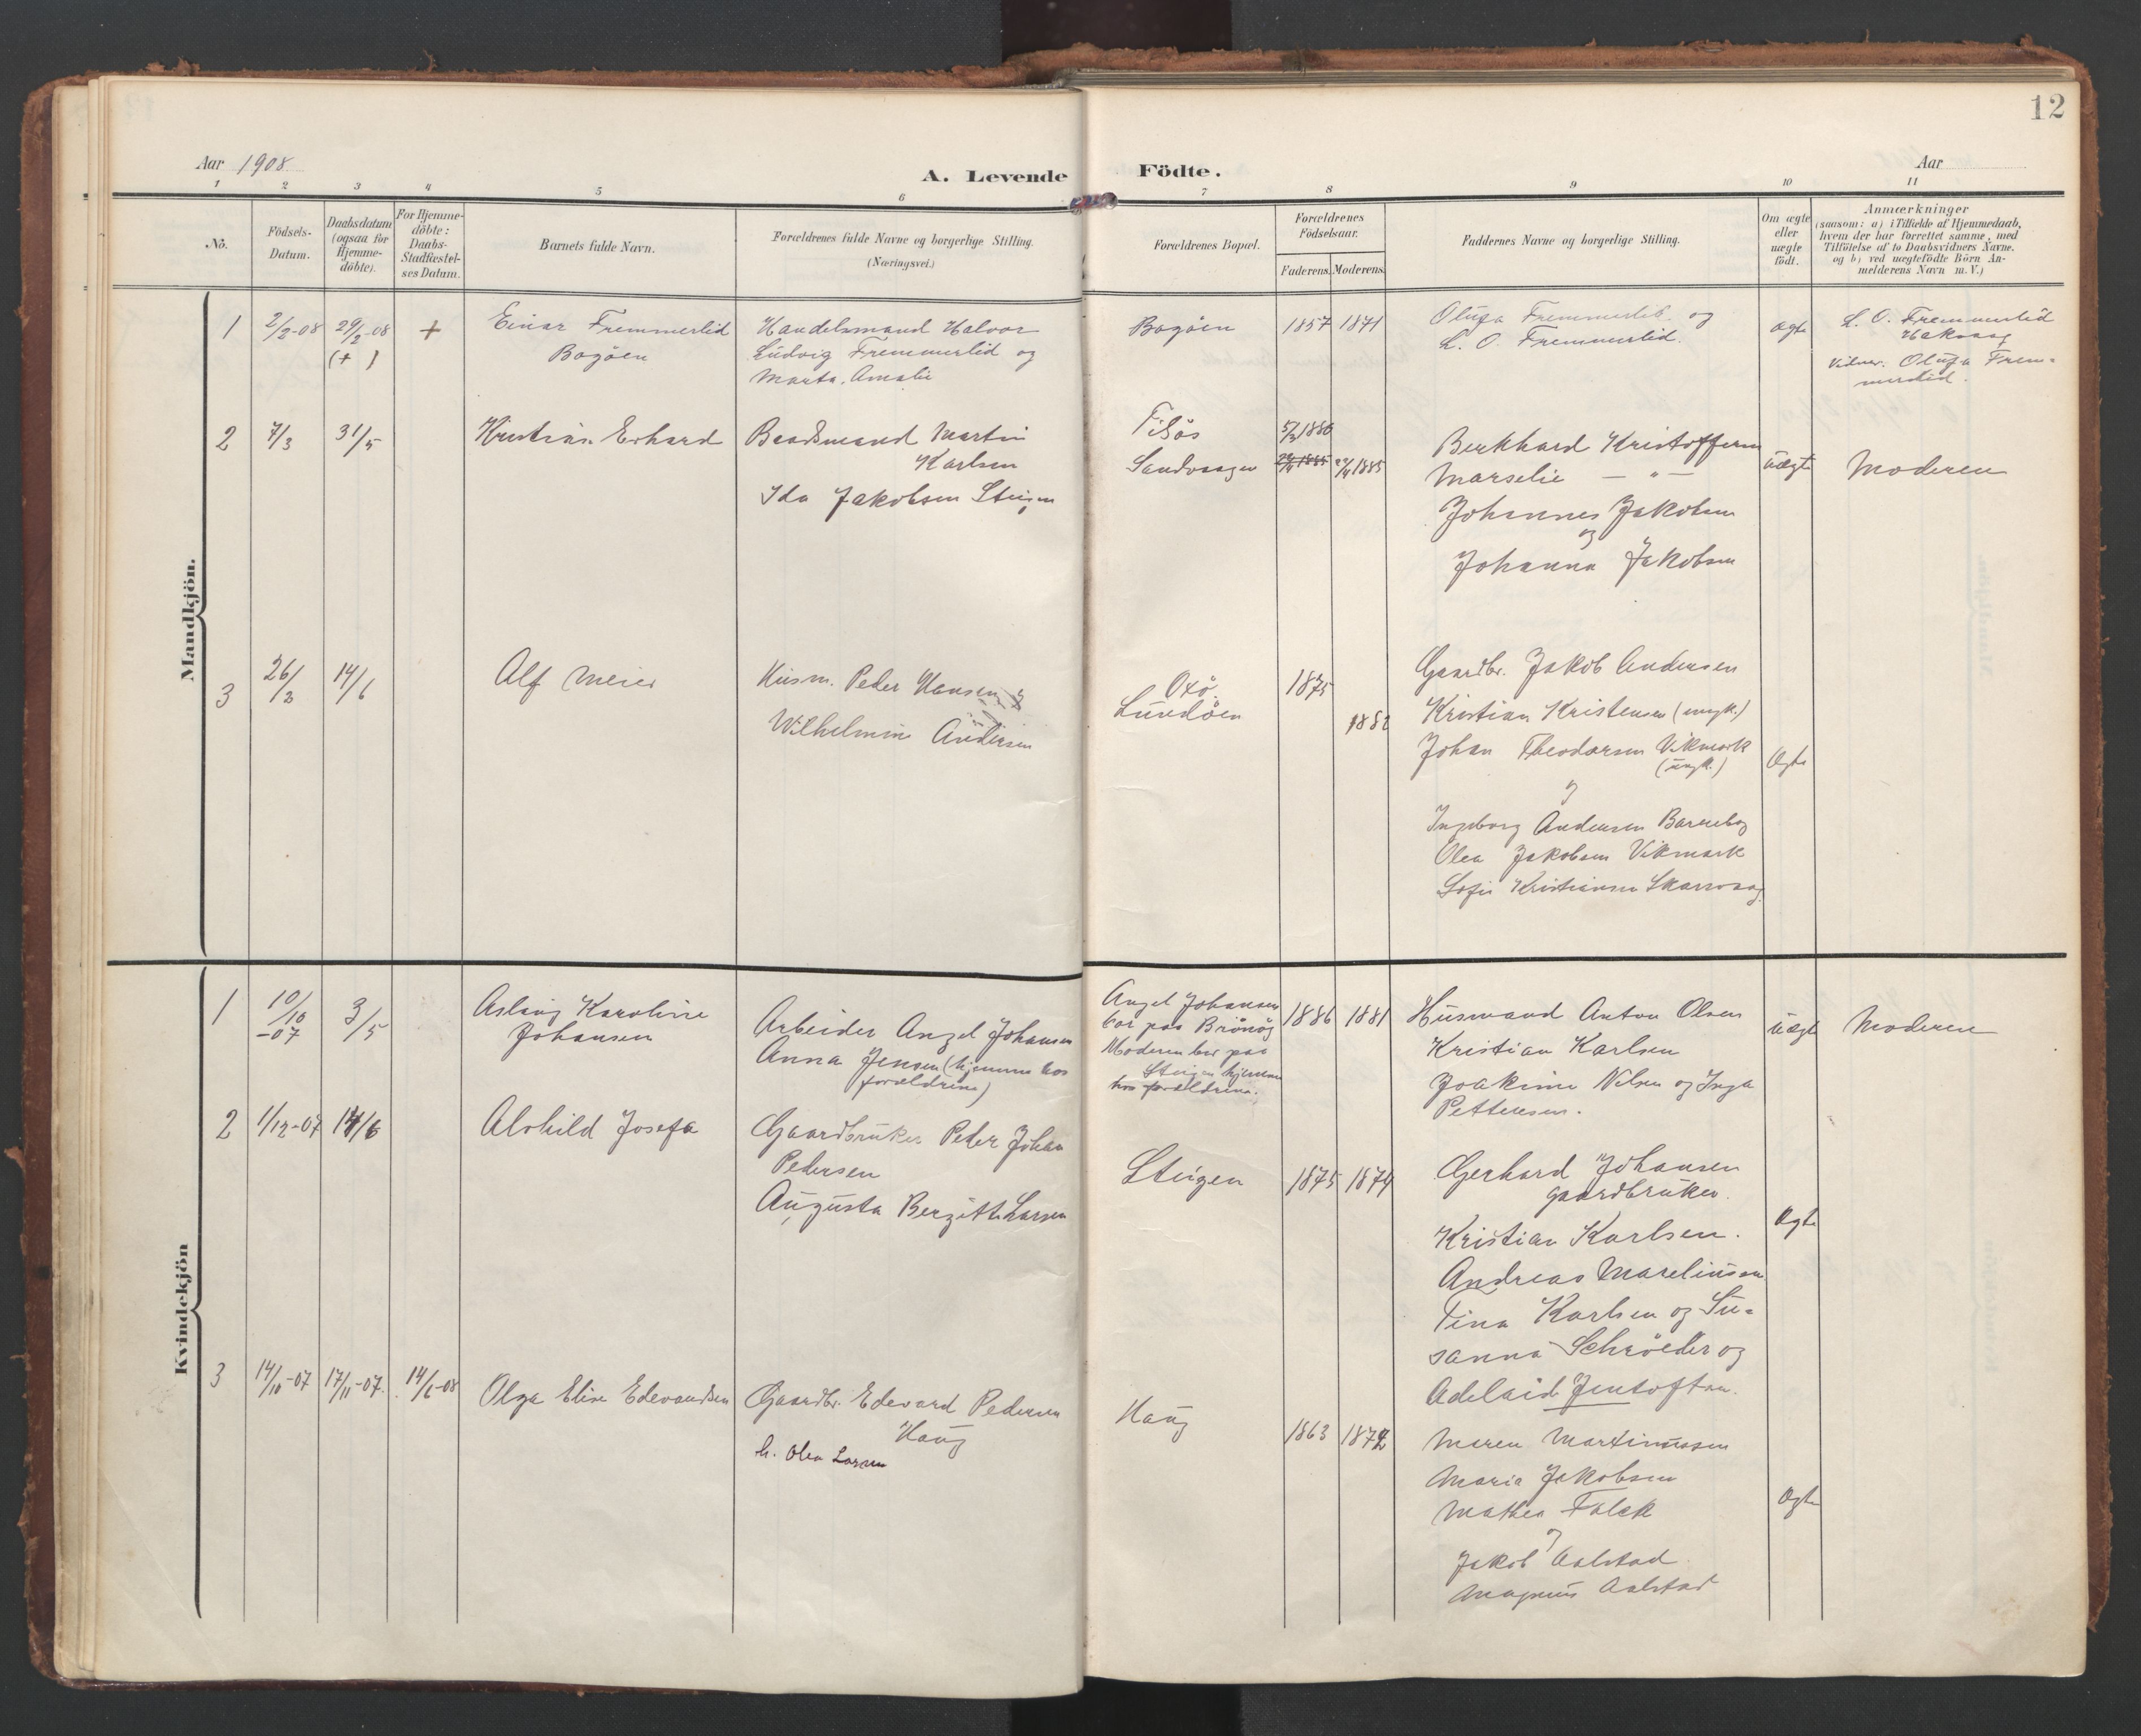 12
Aar 1908
Aar
A. Levende Födte.
1 2 3 4 5 6 7 8 9 10 11
No.
Födsels-
Datum.
Daabsdatum
(ogsaa for
Hjemme-
döbte).
For Hjemme-
döbte:
Daabs-
Stadfæstel-
ses Datum.
Barnets fulde Navn.
Forældrenes fulde Navne og borgerlige Stilling.
(Næringsvei.)
Forældrenes Bopæl.
Forældrenes
Födselsaar.
Faderens. Moderens.
Faddernes Navne og borgerlige Stilling.
Om ægte
eller
uægte
födt.
Anmærkninger
(saasom: a) i Tilfælde af Hjemmedaab,
hvem der har forrettet samme, med
Tilföielse af to Daabsvidners Navne.
og b) ved uægtefödte Börn An-
melderens Navn m. V.)
Mandkjön.
1
2/2-08
29/2-08
(+ )
+
Einar Fremmerlid
Bogöen
Handelsmand Halvor
Ludvig Fremmerlid og
Marta Amalie
Bogöen
1857
1871
Olufa Fremmerlid og
L. O. Fremmerlid.
ægte
L. O. Fremmerlid
Vidner. Olufa Frem-
merlid.
2
7/3
31/5
Kristian Erhard
Baadsmand Martin
Karlsen
Ida Jakobsen Steigen
Sandvaagen
5/3 1886
1885
1885
Berkhard Kristoffersen
Marselie — " —
Johannes Jakobsen
og
Johanna Jakobsen
uægte
Moderen
3
26/3
14/6
Alf Meier
Husm. Peder Hansen og
Wilhelmine Andersen
Lundöen
1875
1882
Gaardbr. Jakob Andersen
Kristian Kristensen (ungk.)
Johan Theodorsen Vikmark
(ungk.)
og
Ingeborg Andersen
Olea Jakobsen Vikmark
Sofie Kristiansen Skarvaag
Ægte
Kvindekjön
1
10/10
-07
3/5
Aslaug Karoline
Johansen
Arbeider Angel Johansen
Anna Jensen (hjemme hos
forældrene)
Angel Johansen
bor paa Brönög
Moderen bor paa
Steigen hjemme
hos forældrene.
1886
1881
Husmand Anton Olsen
Kristian Karlsen
Joakime Nilsen og Inga
Pettersen.
uægte
Moderen
2
1/12-07
14/6
Alvhild Josefa
Gaardbruker Peder Johan
Pedersen
Augusta Bergitte Larsen
Steigen
1875
1874
Gerhard Johansen
gaardbruker.
Kristian Karlsen.
Andreas Marelinsen
Tina Karlsen og Su-
sanna Schröeder og
Adelaide Jentoftsen.
Ægte
3
14/10-07
17/11-07.
14/6-08
Olga Elise Edevardsen
Gaardbr. Edevard Pedersen
Haug
h. Olea Larsen
Haug
1863
1872
Maren Martinussen
Maria Jakobsen
Mathea Falck
og
Jakob Aalstad
Magnus Aalstad
Ægte